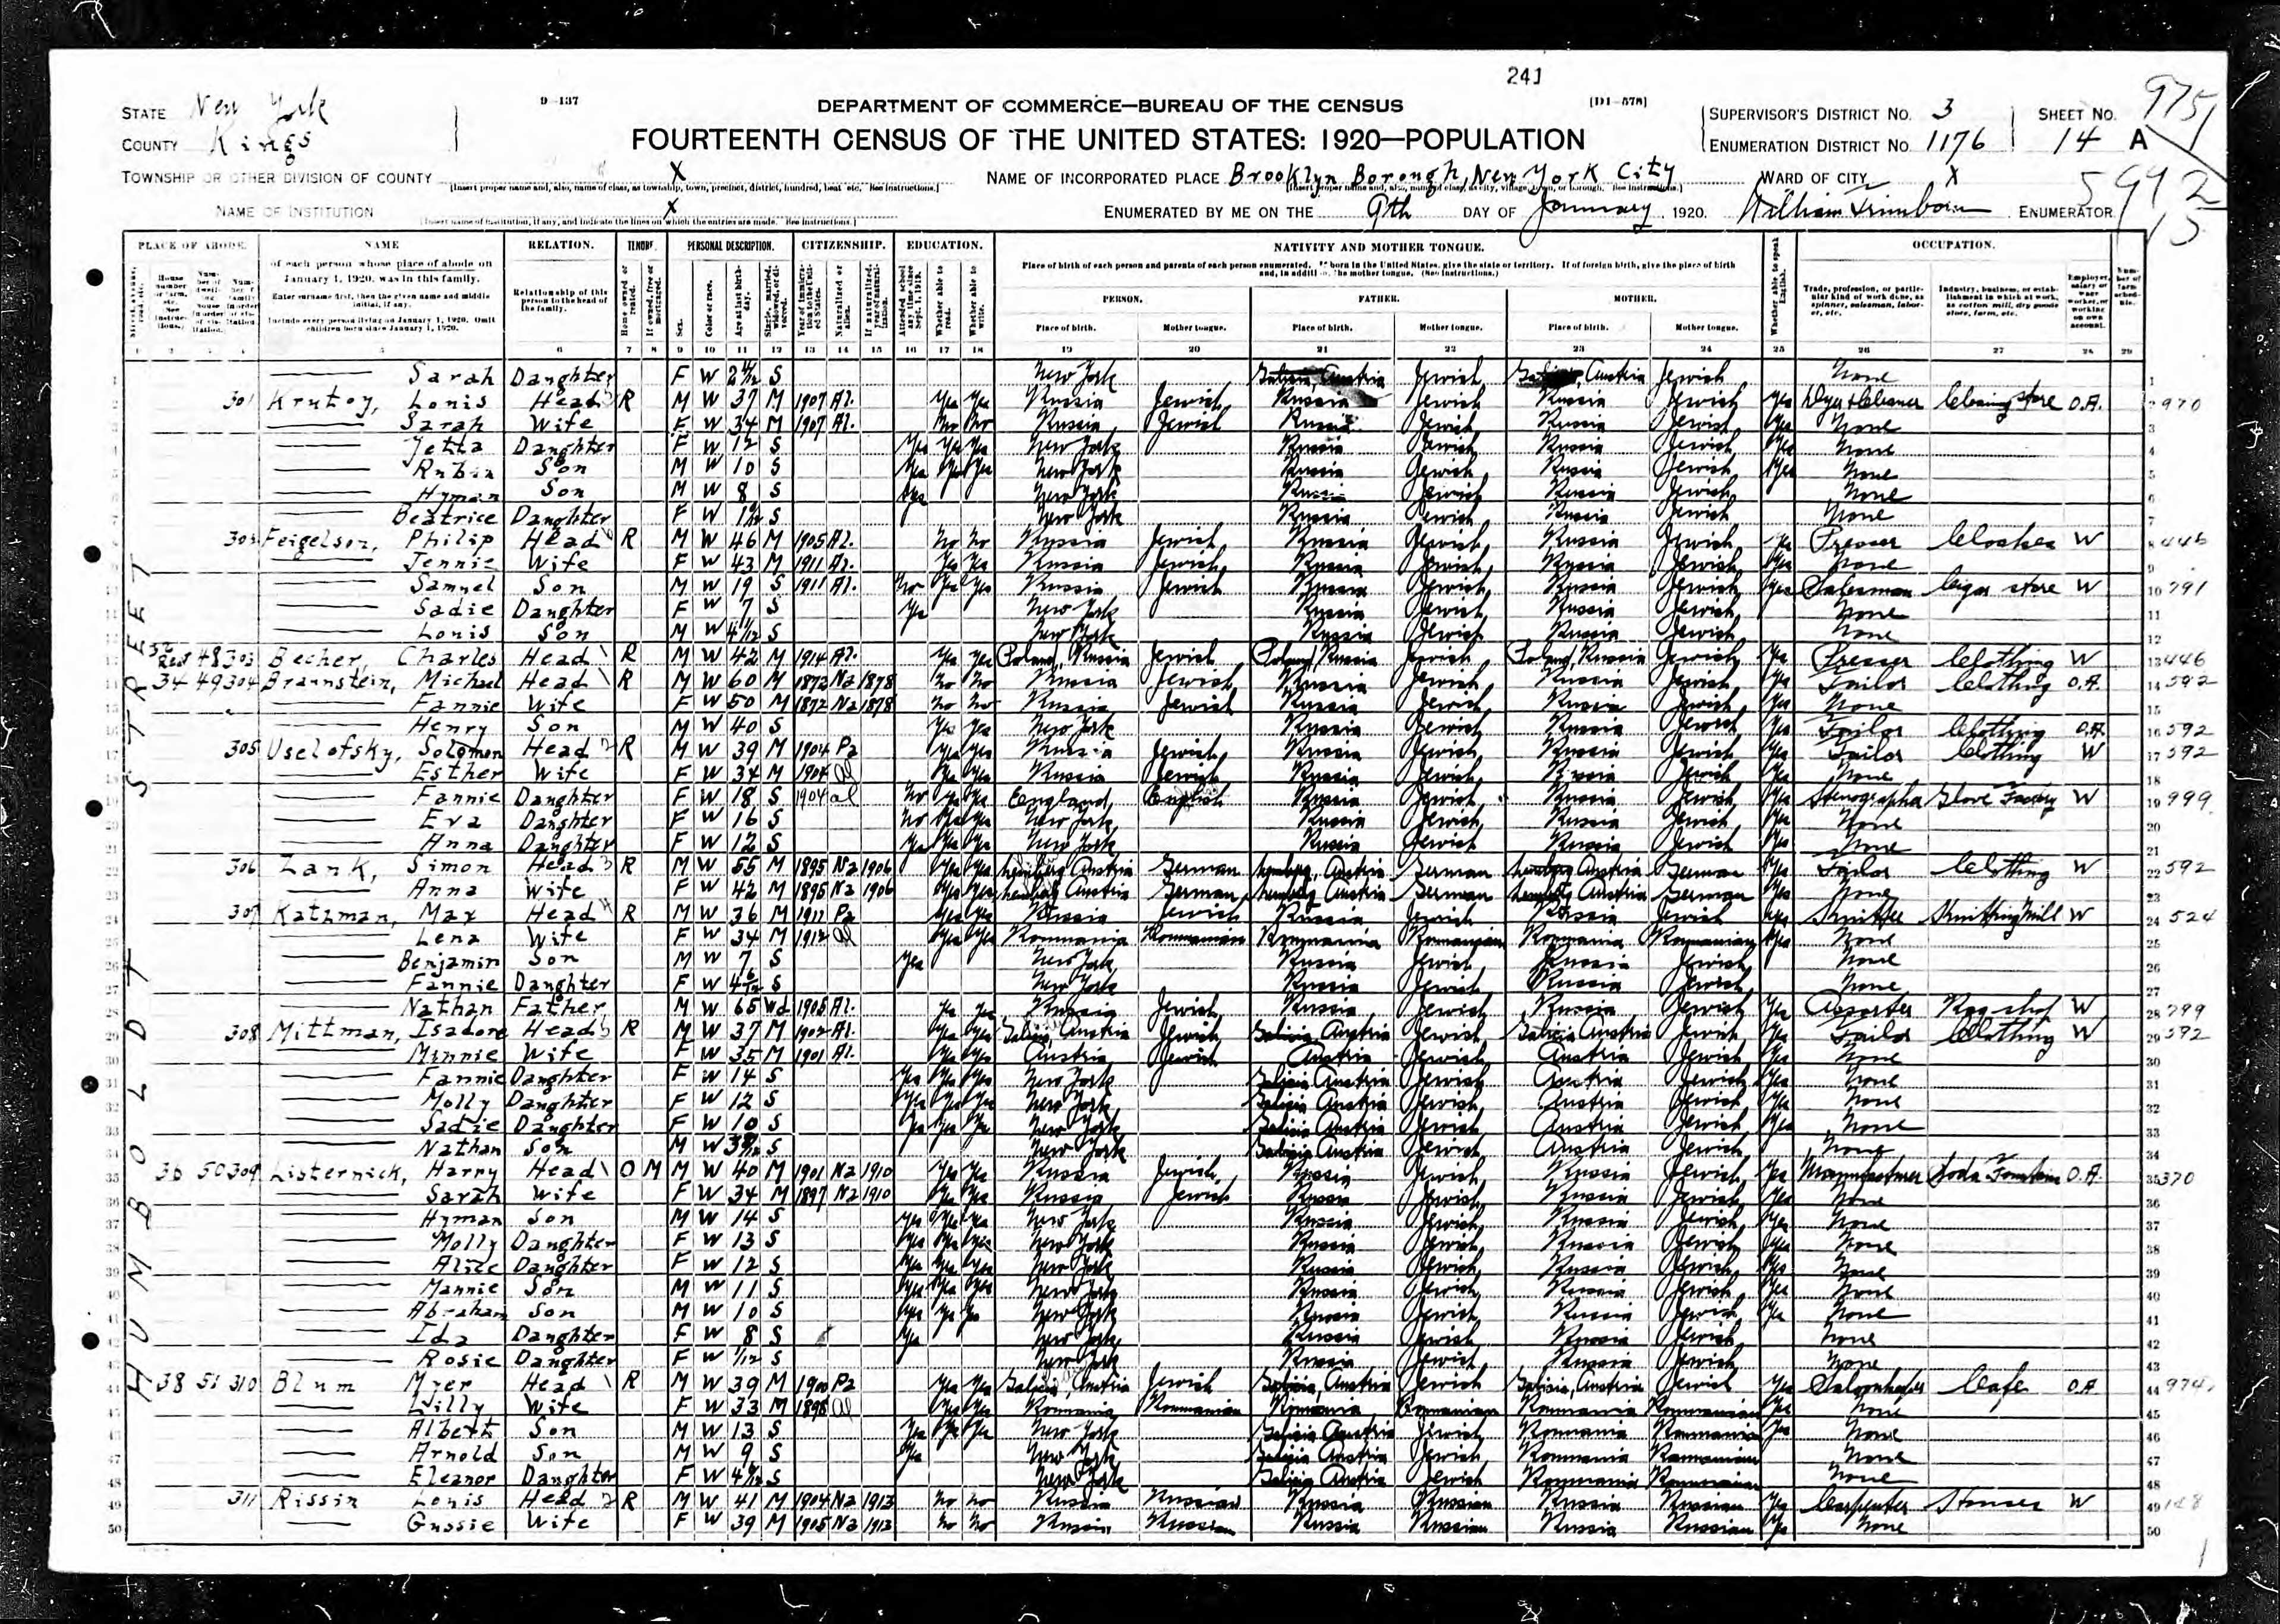 241
9-137
DEPARTMENT OF COMMERCE—BUREAU OF THE CENSUS
[D1-578]
FOURTEENTH CENSUS OF THE UNITED STATES: 1920—POPULATION
STATE New York
COUNTY Kings
SUPERVISOR'S DISTRICT NO. 3
ENUMERATION DISTRICT NO. 1176
SHEET NO. 14 A
TOWNSHIP OR OTHER DIVISION OF COUNTY X
NAME OF INCORPORATED PLACE Brooklyn Borough, New York City
WARD OF CITY X
NAME OF INSTITUTION X
ENUMERATED BY ME ON THE 9th DAY OF January, 1920. William ENUMERATOR
PLACE OF ABODE. NAME RELATION. TENURE. PERSONAL DESCRIPTION. CITIZENSHIP. EDUCATION. NATIVITY AND MOTHER TONGUE. OCCUPATION.
of each person whose place of abode on January 1, 1920, was in this family.
Enter surname first, then the given name and middle initial, if any.
Include every person living on January 1, 1920. Omit children born since January 1, 1920.
Relationship of this person to the head of the family.
Place of birth of each person and parents of each person enumerated. If born in the United States, give the state or territory. If of foreign birth, give the place of birth and, in addition, the mother tongue. (See instructions.)
PERSON. FATHER. MOTHER.
Place of birth. Mother tongue. Place of birth. Mother tongue. Place of birth. Mother tongue.
HUMBOLDT STREET
1 Sarah Daughter F W S New York Austria Jewish Austria Jewish None
2 301 Krutoy, Louis Head R M W 37 M 1907 Al. Yes Yes Russia Jewish Russia Jewish Russia Jewish Yes Dyer & Cleaner Cleaning store O.A. 970
3 Sarah Wife F W 34 M 1907 Al. No No Russia Jewish Russia Jewish Russia Jewish Yes None
4 Yetta Daughter F W 12 S Yes Yes Yes New York Russia Jewish Russia Jewish Yes None
5 Rubin Son M W 10 S Yes Yes Yes New York Russia Jewish Russia Jewish Yes None
6 Hyman Son M W 8 S Yes New York Russia Jewish Russia Jewish None
7 Beatrice Daughter F W S New York Russia Jewish Russia Jewish None
8 Feigelson, Philip Head R M W 46 M 1905 Al. No No Russia Jewish Russia Jewish Russia Jewish Yes Presser Cloakes W 446
9 Jennie Wife F W 43 M 1911 Al. Yes Yes Russia Jewish Russia Jewish Russia Jewish Yes None
10 Samuel Son M W 19 S 1911 Al. No Yes Yes Russia Jewish Russia Jewish Russia Jewish Yes Salesman Cigar store W 791
11 Sadie Daughter F W 7 S Yes New York Russia Jewish Russia Jewish None
12 Louis Son M W S New York Russia Jewish Russia Jewish None
13 48 303 Becher, Charles Head R M W 42 M 1914 Al. Yes Yes Poland, Russia Jewish Poland, Russia Jewish Poland, Russia Jewish Yes Presser Clothing W 446
14 34 49 304 Braunstein, Michael Head R M W 60 M 1872 Na 1878 No No Russia Jewish Russia Jewish Russia Jewish Yes Tailor Clothing O.A. 592
15 Fannie Wife F W 50 M 1872 Na 1878 No No Russia Jewish Russia Jewish Russia Jewish Yes None
16 Henry Son M W 40 S Yes Yes New York Russia Jewish Russia Jewish Yes Tailor Clothing O.A. 592
17 305 Uselofsky, Solomon Head R M W 39 M 1904 Pa Yes Yes Russia Jewish Russia Jewish Russia Jewish Yes Tailor Clothing W 592
18 Esther Wife F W 34 M 1904 Al Yes Yes Russia Jewish Russia Jewish Russia Jewish Yes None
19 Fannie Daughter F W 18 S 1904 al No Yes Yes England, English Russia Jewish Russia Jewish Yes Stenographer Glove Factory W 999
20 Eva Daughter F W 16 S No Yes Yes New York Russia Jewish Russia Jewish Yes None
21 Anna Daughter F W 12 S Yes Yes Yes New York Russia Jewish Russia Jewish Yes None
22 306 Zank, Simon Head R M W 55 M 1895 Na 1906 Yes Yes Lemberg Austria German Lemberg, Austria German Lemberg Austria German Yes Tailor Clothing W 592
23 Anna Wife F W 42 M 1895 Na 1906 Yes Yes Lemberg Austria German Lemberg Austria German Lemberg Austria German Yes None
24 307 Katzman, Max Head R M W 36 M 1911 Pa Yes Yes Russia Jewish Russia Jewish Russia Jewish Yes Knitter Knitting Mill W 524
25 Lena Wife F W 34 M 1912 Al Yes Yes Roumania Roumanian Roumania Roumanian Roumania Roumanian Yes None
26 Benjamin Son M W 7 S Yes New York Russia Jewish Russia Jewish None
27 Fannie Daughter F W S New York Russia Jewish Russia Jewish None
28 Nathan Father M W 65 Wd 1905 Al. Yes Yes Russia Jewish Russia Jewish Russia Jewish Yes Assorter Rag shop W 799
29 308 Mittman, Isadore Head R M W 37 M 1902 Al. Yes Yes Galicia, Austria Jewish Galicia, Austria Jewish Galicia Austria Jewish Yes Tailor Clothing W 592
30 Minnie Wife F W 35 M 1901 Al. Yes Yes Austria Jewish Austria Jewish Austria Jewish Yes None
31 Fannie Daughter F W 14 S Yes Yes Yes New York Galicia Austria Jewish Austria Jewish Yes None
32 Molly Daughter F W 12 S Yes Yes Yes New York Galicia Austria Jewish Austria Jewish Yes None
33 Sadie Daughter F W 10 S Yes Yes Yes New York Galicia Austria Jewish Austria Jewish Yes None
34 Nathan Son M W S New York Galicia Austria Jewish Austria Jewish None
35 36 50 309 Listernick, Harry Head O M M W 40 M 1901 Na 1910 Yes Yes Russia Jewish Russia Jewish Russia Jewish Yes Manufacturer Soda Fountains O.A. 370
36 Sarah Wife F W 34 M 1897 Na 1910 Yes Yes Russia Jewish Russia Jewish Russia Jewish Yes None
37 Hyman Son M W 14 S Yes Yes Yes New York Russia Jewish Russia Jewish Yes None
38 Molly Daughter F W 13 S Yes Yes Yes New York Russia Jewish Russia Jewish Yes None
39 Alice Daughter F W 12 S Yes Yes Yes New York Russia Jewish Russia Jewish Yes None
40 Mannie Son M W 11 S Yes Yes Yes New York Russia Jewish Russia Jewish Yes None
41 Abraham Son M W 10 S Yes Yes Yes New York Russia Jewish Russia Jewish Yes None
42 Ida Daughter F W 8 S Yes New York Russia Jewish Russia Jewish None
43 Rosie Daughter F W 1/12 S New York Russia Jewish Russia Jewish None
44 38 51 310 Blum Myer Head R M W 39 M 1900 Pa Yes Yes Galicia, Austria Jewish Galicia, Austria Jewish Galicia, Austria Jewish Yes Saloonkeeper Cafe O.A 974
45 Lilly Wife F W 33 M 1898 Al Yes Yes Roumania Roumanian Romania Romanian Roumania Roumanian Yes None
46 Albert Son M W 13 S Yes Yes Yes New York Galicia Austria Jewish Roumania Roumanian Yes None
47 Arnold Son M W 9 S Yes New York Galicia Austria Jewish Roumania Roumanian None
48 Eleanor Daughter F W S New York Galicia Austria Jewish Roumania Roumanian None
49 311 Rissin Louis Head R M W 41 M 1904 Na 1913 No No Russia Russian Russia Russian Russia Russian Yes Carpenter W
50 Gussie Wife F W 39 M 1905 Na 1913 No No Russia Russian Russia Russian Russia Russian Yes None